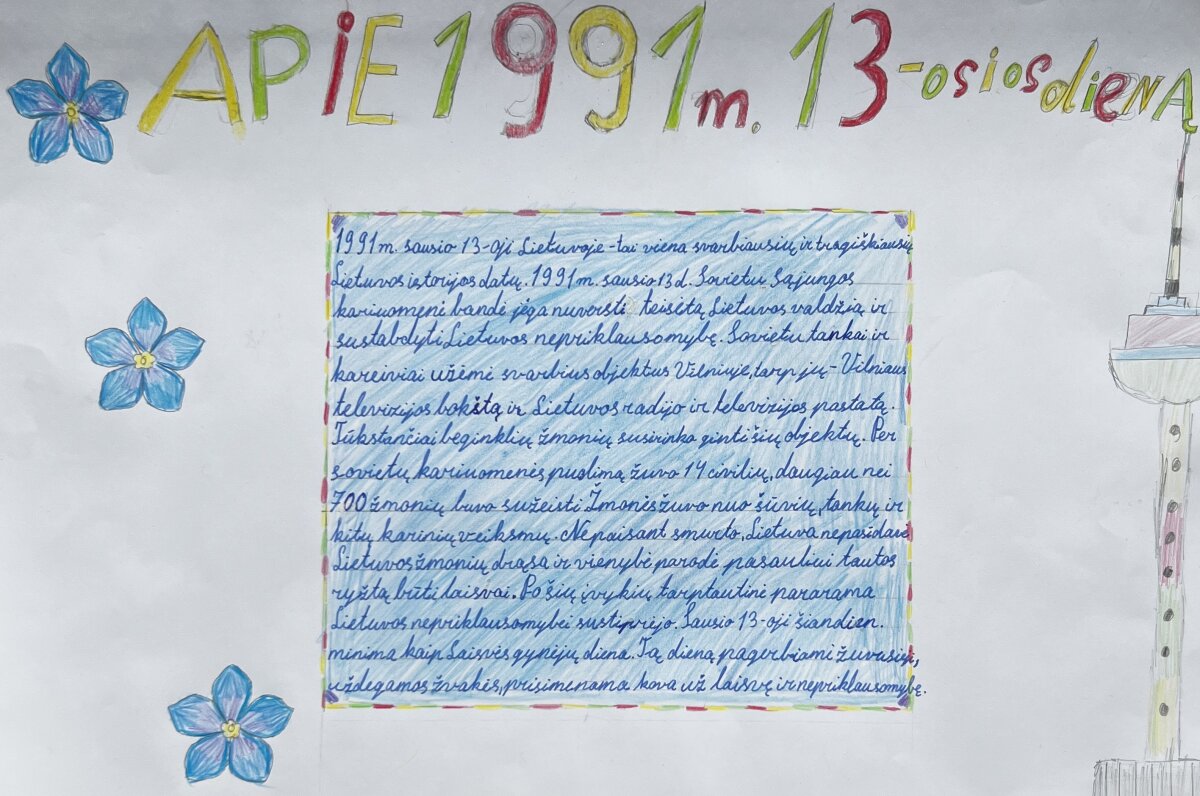 APIE 1991 m. 13-osios dieną
1991 m. sausio 13-oji Lietuvoje - tai viena svarbiausių ir tragiškiausių
Lietuvos istorijos datų. 1991 m. sausio 13 d. Sovietu Sąjungos
kariuomenė bandė jėga nuversti teisėtą Lietuvos valdžią ir
sustabdyti Lietuvos nepriklausomybę. Sovietu tankai ir
kareiviai užėmi svarbius objektus Vilniuje, tarp jų - Vilniaus
televizijos bokštą ir Lietuvos radijo ir televizijos pastatą.
Tūkstančiai beginklių žmonių susirinko ginti šių objektų. Per
sovietų kariuomenės puolimą žuvo 14 civilių, daugiau nei
700 žmonių buvo sužeisti Žmonės žuvo nuo šūvių, tankų ir
kitų karinių veiksmų. Nepaisant smurto, Lietuva nepasidavė
Lietuvos žmonių drąsa ir vienybė parodė pasauliui tautos
ryžtą būti laisvai. Po šių įvykių tarptautinė pararama
Lietuvos nepriklausomybei sustiprėjo. Sausio 13-oji šiandien.
minima kaip Laisvės gynėjų diena. Tą dieną pagerbiami žuvusieji,
uždegamos žvakės, prisimenama kova už laisvę ir nepriklausomybę.